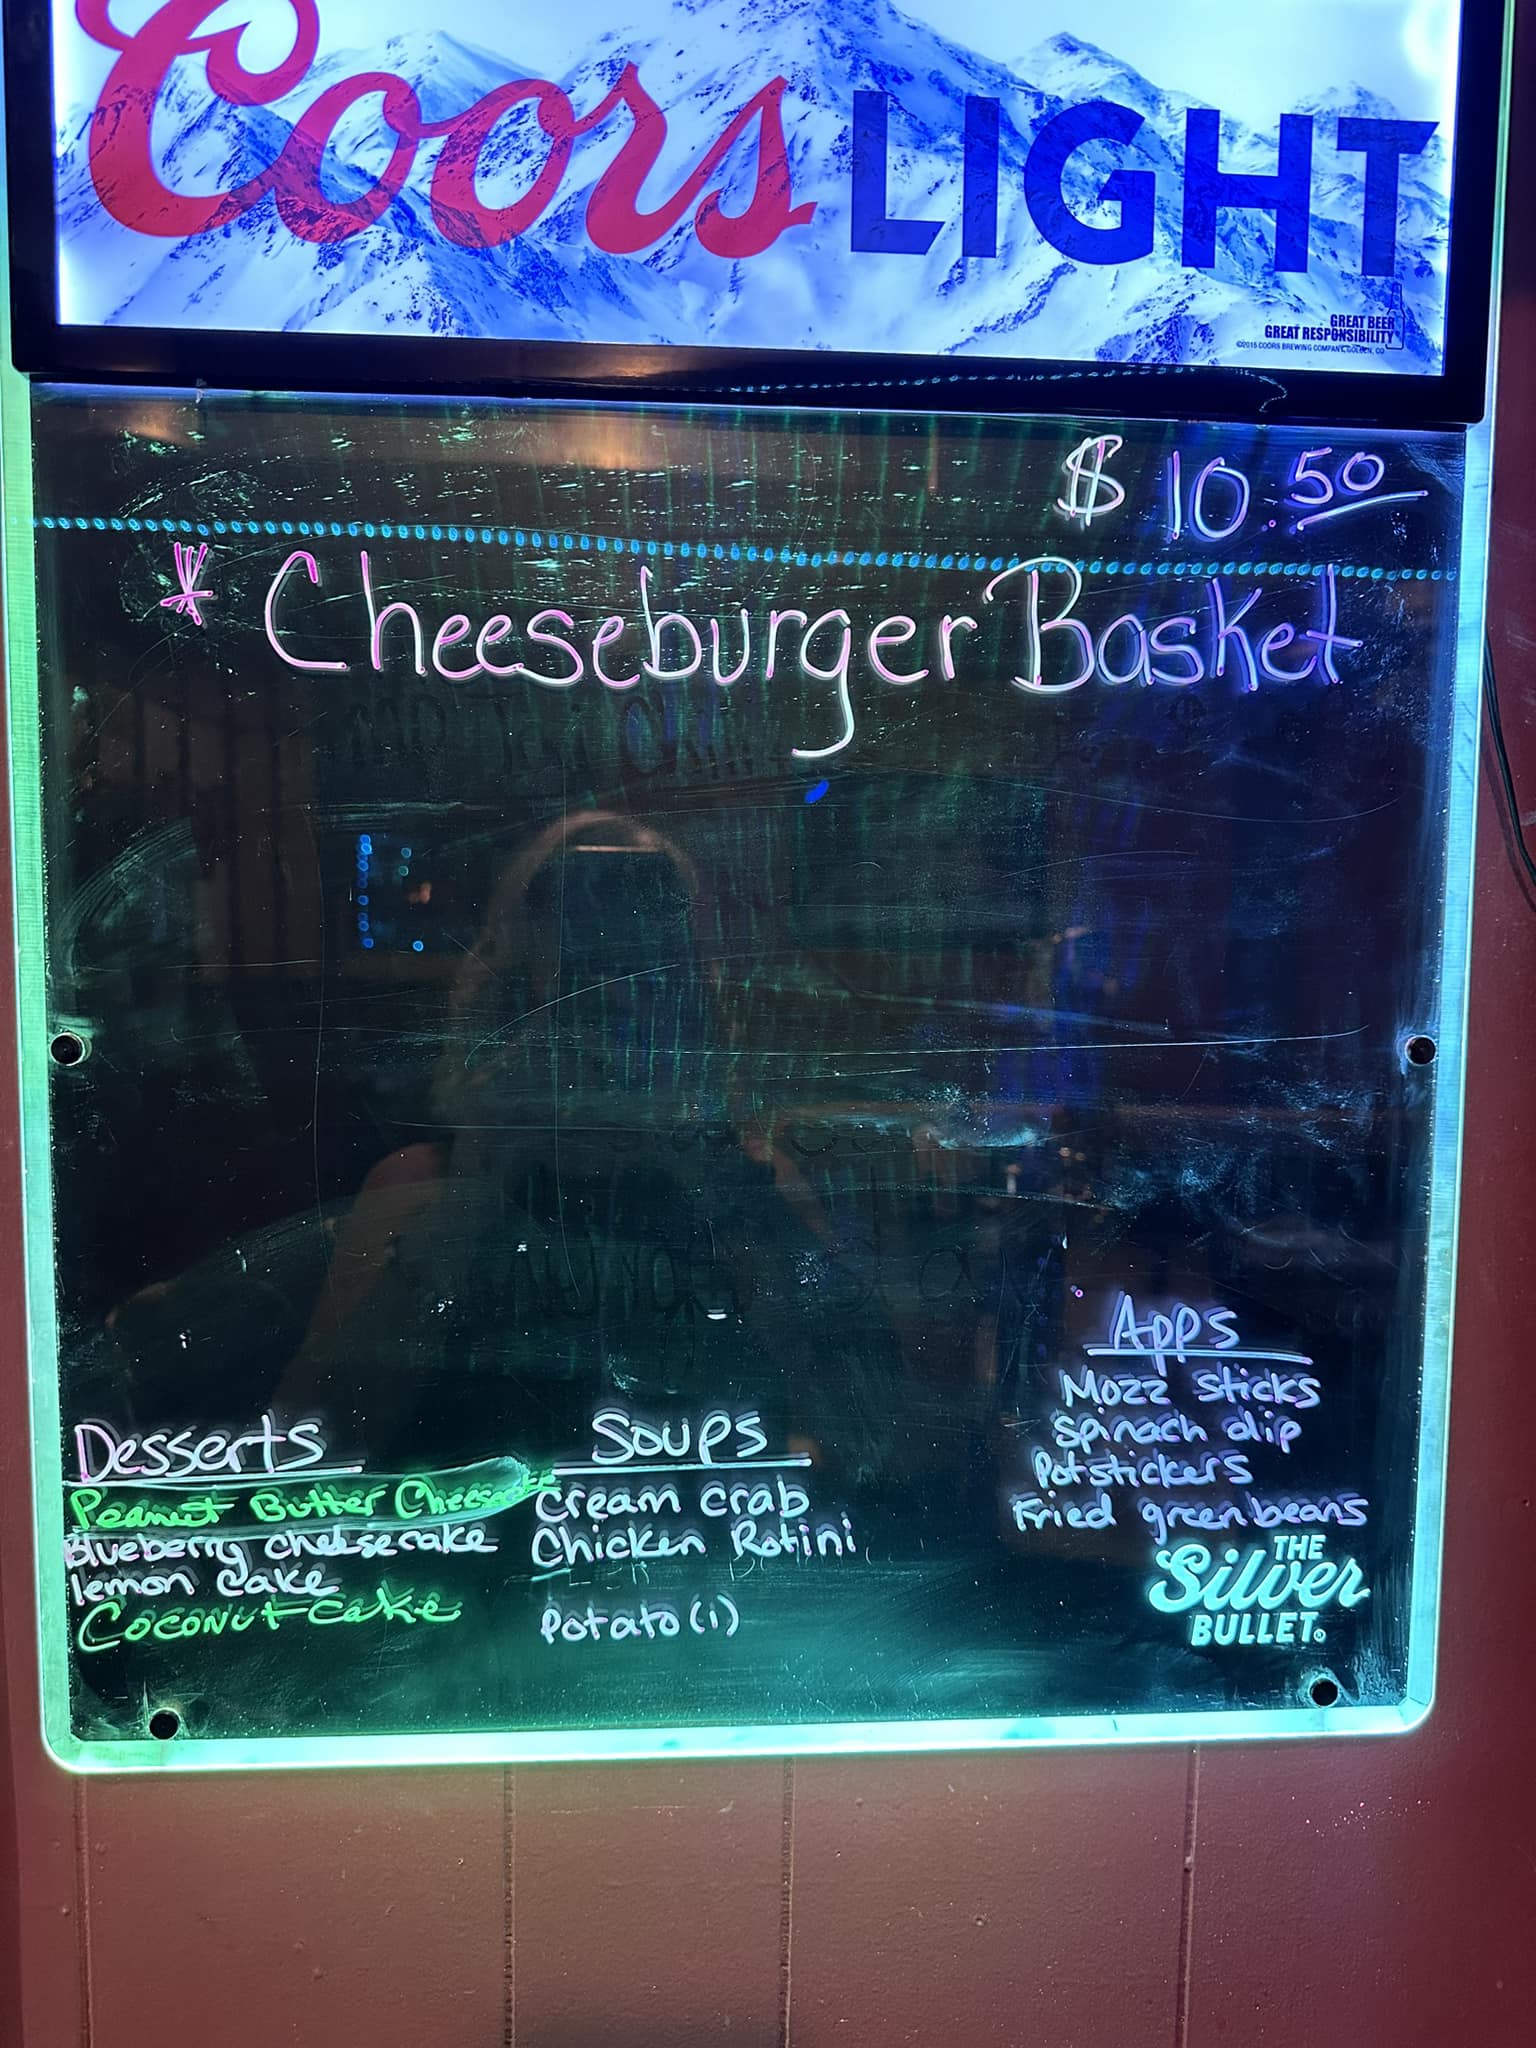 Coors LIGHT
GREAT BEER
GREAT RESPONSIBILITY
©2015 COORS BREWING COMPANY, GOLDEN, CO
$ 10.50
* Cheeseburger Basket
Desserts
Peanut Butter Cheesecake
Blueberry cheesecake
lemon cake
Coconut Cake
Soups
Cream crab
Chicken Rotini
Potato (1)
Apps
Mozz sticks
Spinach dip
Potstickers
Fried greenbeans
THE
Silver
BULLET®